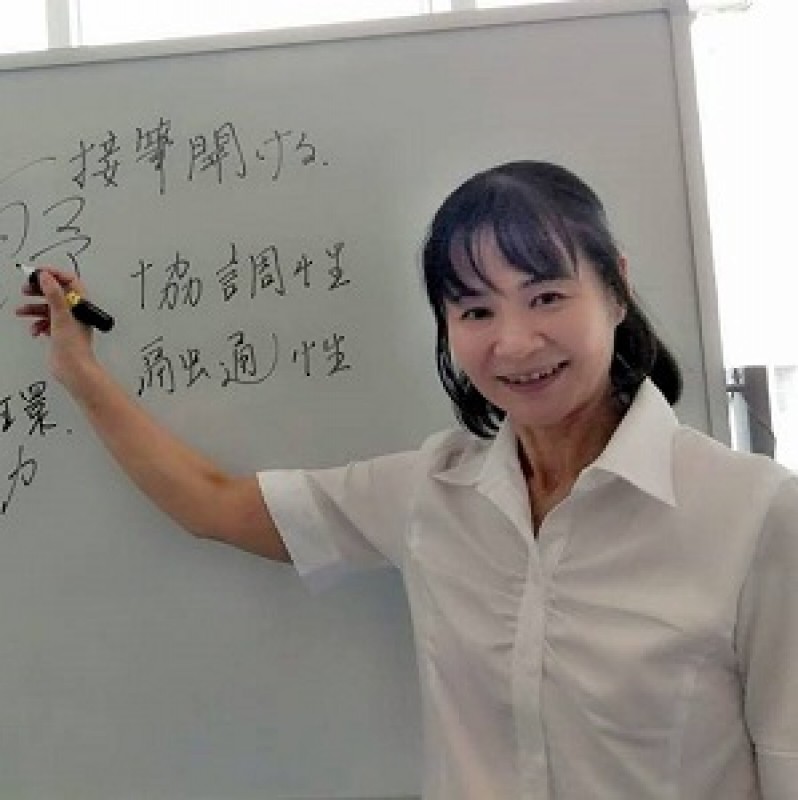 接筆開ける.
協調性
融通性
環.
力